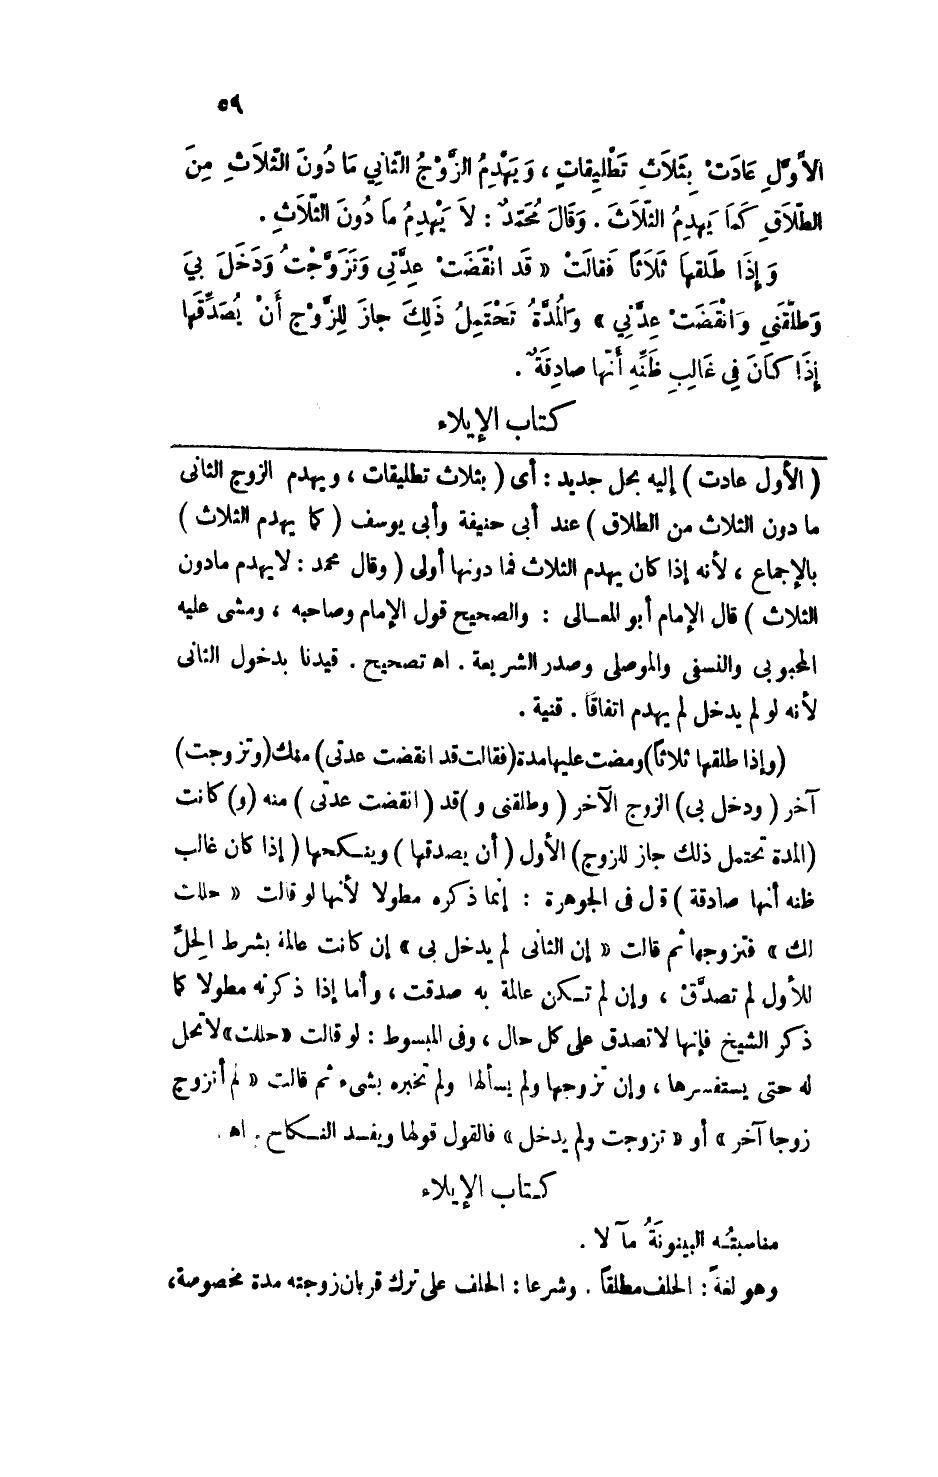 ٥٩
الأَوَّلِ عَادَتْ بِثَلَاثِ تَطْلِيقاتٍ ، وَيَهْدِمُ الزَّوْجُ الثَّانِي مَا دُونَ الثَّلَاثِ مِنَ
الطَّلَاقِ كَمَا يَهدِمُ الثَّلَاثَ . وَقَالَ مُحَمَّدٌ : لَا يَهْدِمُ مَا دُونَ الثَّلَاثِ .
وَإِذَا طَلقهَا ثَلَاثاً فَقالَتْ « قَد انْقَضَتْ عِدَّتِي وَتَزَوَّجْتُ وَدَخَلَ بِيَ
وَطلّقَنِي وَانْقَضَتْ عِدَّتِي » وَالْمُدَّةُ تَحْتَمِلُ ذَلِكَ جازَ لِلزَّوْجِ أَنْ يُصَدِّقَهَا
إِذَا كَانَ فِي غَالِبِ ظَنِّهِ أَنَّها صادِقَةٌ .
كتاب الإيلاء
( الأول عادت ) إليه بحل جديد : أى ( بثلاث تطليقات ، ويهدم الزوج الثانى
ما دون الثلاث من الطلاق ) عند أبى حنيفة وأبى يوسف ( كما يهدم الثلاث )
بالإجماع ، لأنه إذا كان يهدم الثلاث فما دونها أولى ( وقال محمد : لا يهدم مادون
الثلاث ) قال الإمام أبو المعـالى : والصحيح قول الإمام وصاحبه ، ومشى عليه
المحبوبى والنسفى والموصلى وصدر الشريعة . اھ تصحيح . قيدنا بدخول الثانى
لأنه لو لم يدخل لم يهدم اتفاقاً . قنية .
(وإذا طلقها ثلاثاً) ومضت عليها مدة (فقالت قد انقضت عدتى) منك (وتزوجت)
آخر ( ودخل بى) الزوج الآخر ( وطلقنى و ) قد ( انقضت عدتى ) منه (و) كانت
(المدة تحتمل ذلك جاز للزوج) الأول ( أن يصدقها ) وينـكحها ( إذا كان غالب
ظنه أنها صادقة ) قال فى الجوهرة : إنما ذكره مطولا لأنها لو قالت « حللت
لك » فتزوجها ثم قالت « إن الثانى لم يدخل بى » إن كانت عالمة بشرط الحِلِّ
للأول لم تصدَّقْ ، وإن لم تـكن عالمة به صدقت ، وأما إذا ذكرته مطولا كما
ذكر الشيخ فإنها لا تصدق على كل حال ، وفى المبسوط : لو قالت «حللت» لا تحل
له حتى يستفسرها ، وإن تزوجها ولم يسألها ولم تخبره بشىء ثم قالت « لم أتزوج
زوجا آخر » أو « تزوجت ولم يدخل » فالقول قولها ويفسد النـكاح . اھ .
كتاب الإيلاء
مناسبتُـه البينونَةُ مآلا .
وهو لغةً : الحلف مطلقاً . وشرعا : الحلف على ترك قربان زوجته مدة مخصوصة،